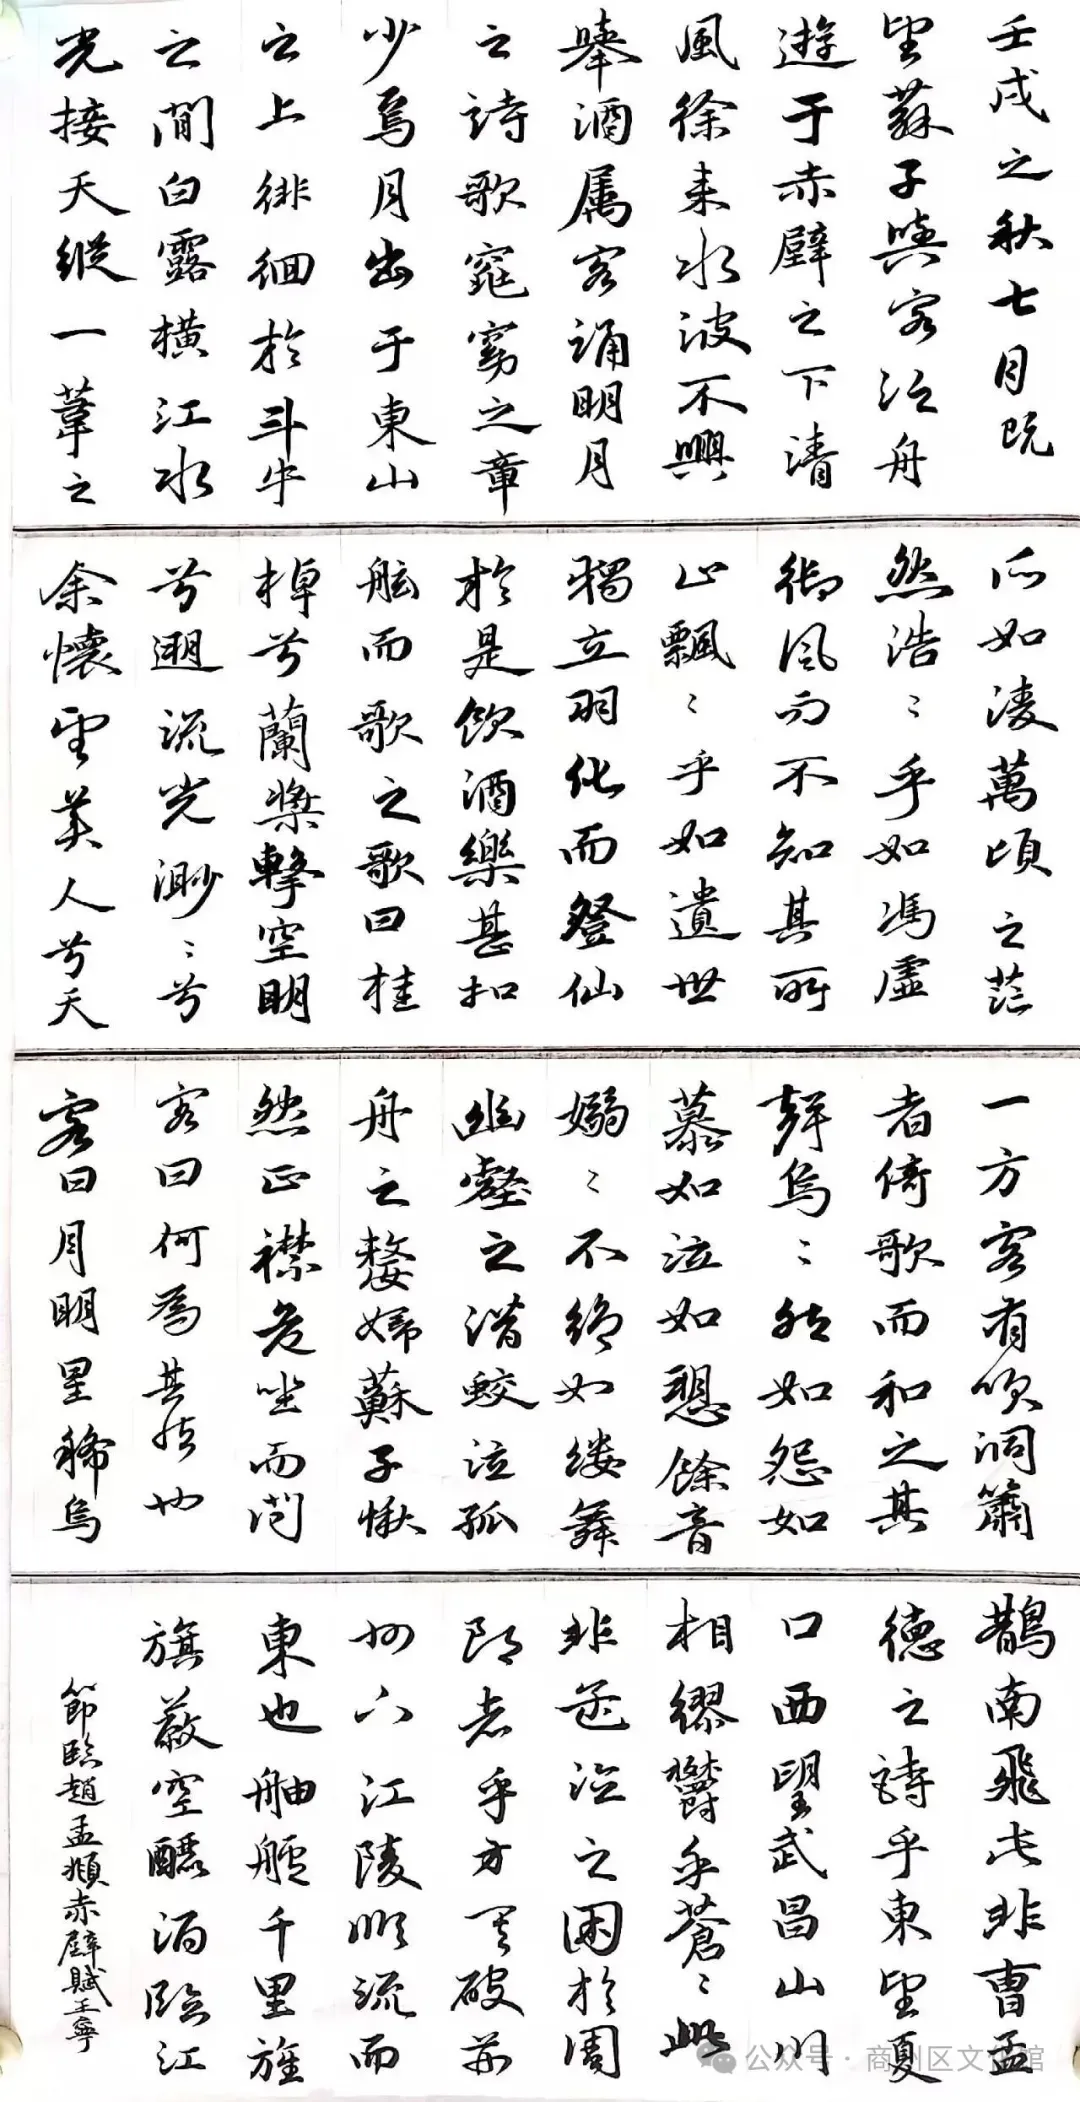 壬戌之秋七月既
望蘇子與客泛舟
遊于赤壁之下清
風徐来水波不興
舉酒属客誦明月
之詩歌窈窕之章
少焉月出于東山
之上徘徊於斗牛
之間白露横江水
光接天縱一葦之
所如凌萬頃之茫
然浩〻乎如馮虚
御風而不知其所
止飄〻乎如遺世
獨立羽化而登仙
於是飲酒樂甚扣
舷而歌之歌曰桂
棹兮蘭槳擊空明
兮遡流光渺〻兮
余懷望美人兮天
一方客有吹洞簫
者倚歌而和之其
聲嗚〻然如怨如
慕如泣如愬餘音
嫋〻不絶如縷舞
幽壑之潜蛟泣孤
舟之嫠婦蘇子愀
然正襟危坐而問
客曰何為其然也
客曰月明星稀烏
鵲南飛此非曹孟
德之詩乎東望夏
口西望武昌山川
相繆鬱乎蒼〻此
非孟德之困於周
郎者乎方其破荊
州下江陵順流而
東也舳艫千里旌
旗蔽空釃酒臨江
節臨趙孟頫赤壁賦王寧
公众号·商州区文化馆